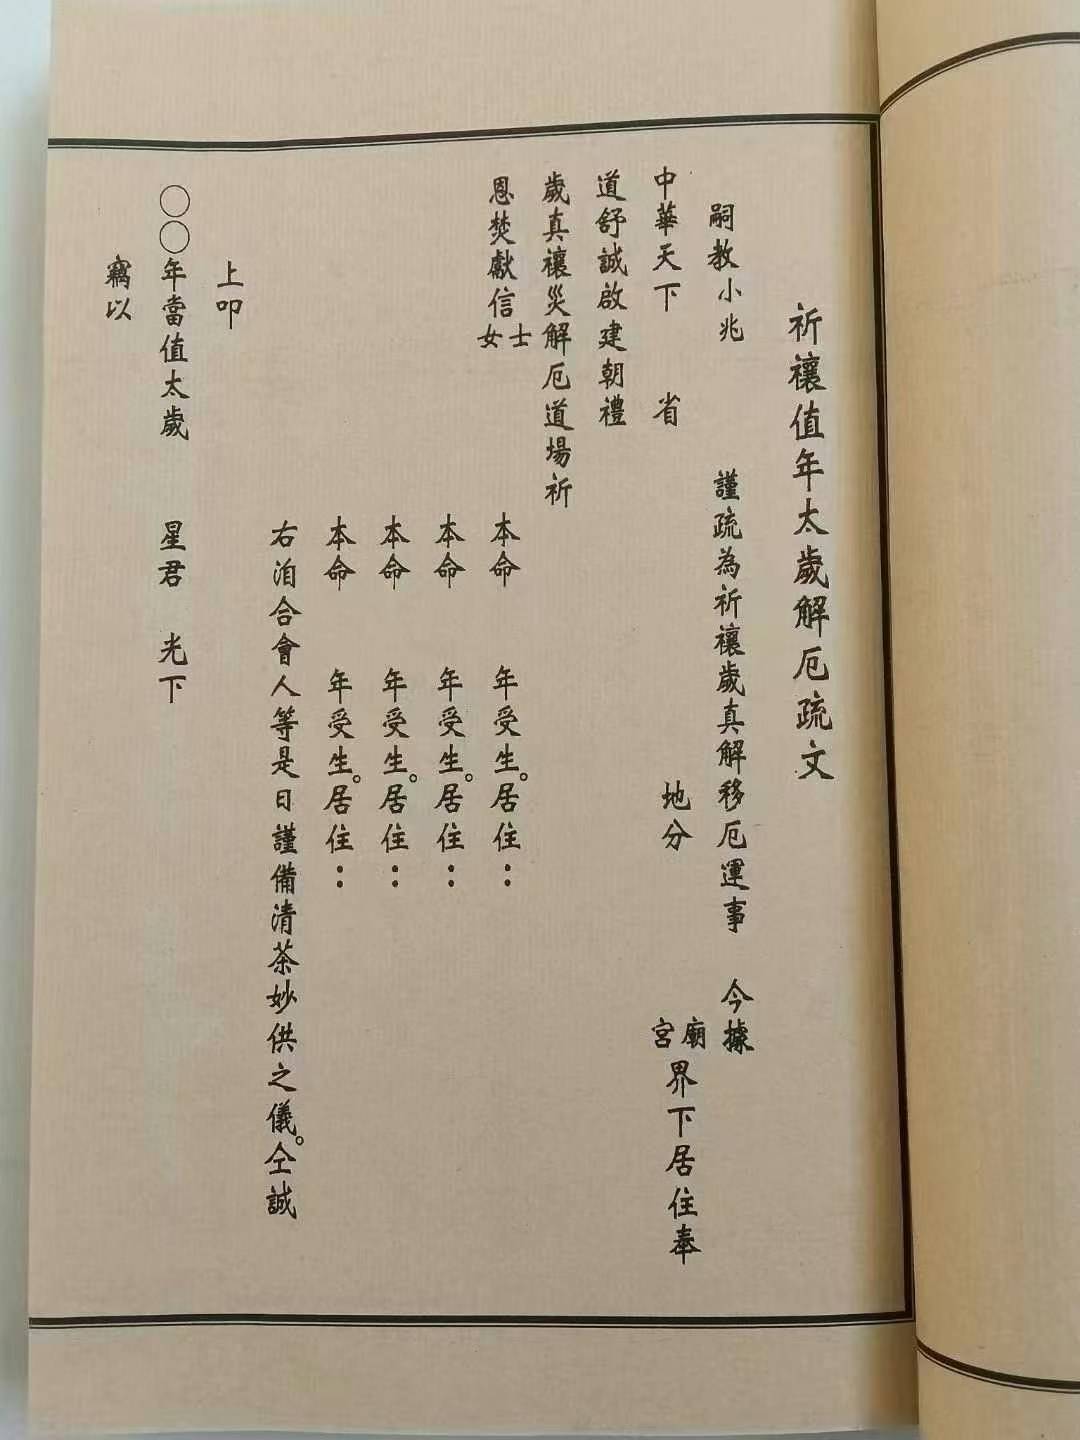 祈禳值年太歲解厄疏文
嗣教小兆 謹疏為祈禳歲真解移厄運事 今據
中華天下 省 地分 廟宮界下居住奉
道舒誠啟建朝禮
歲真禳災解厄道場祈
恩焚獻信士女
本命 年受生。居住：
本命 年受生。居住：
本命 年受生。居住：
本命 年受生。居住：
右洎合會人等是日謹備清茶妙供之儀。仝誠
上叩
〇〇年當值太歲 星君 光下
竊以